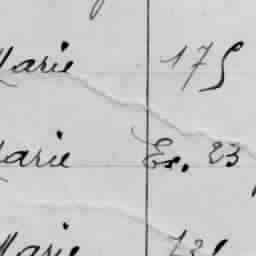 Marie 175
Marie Ex. 23
Marie